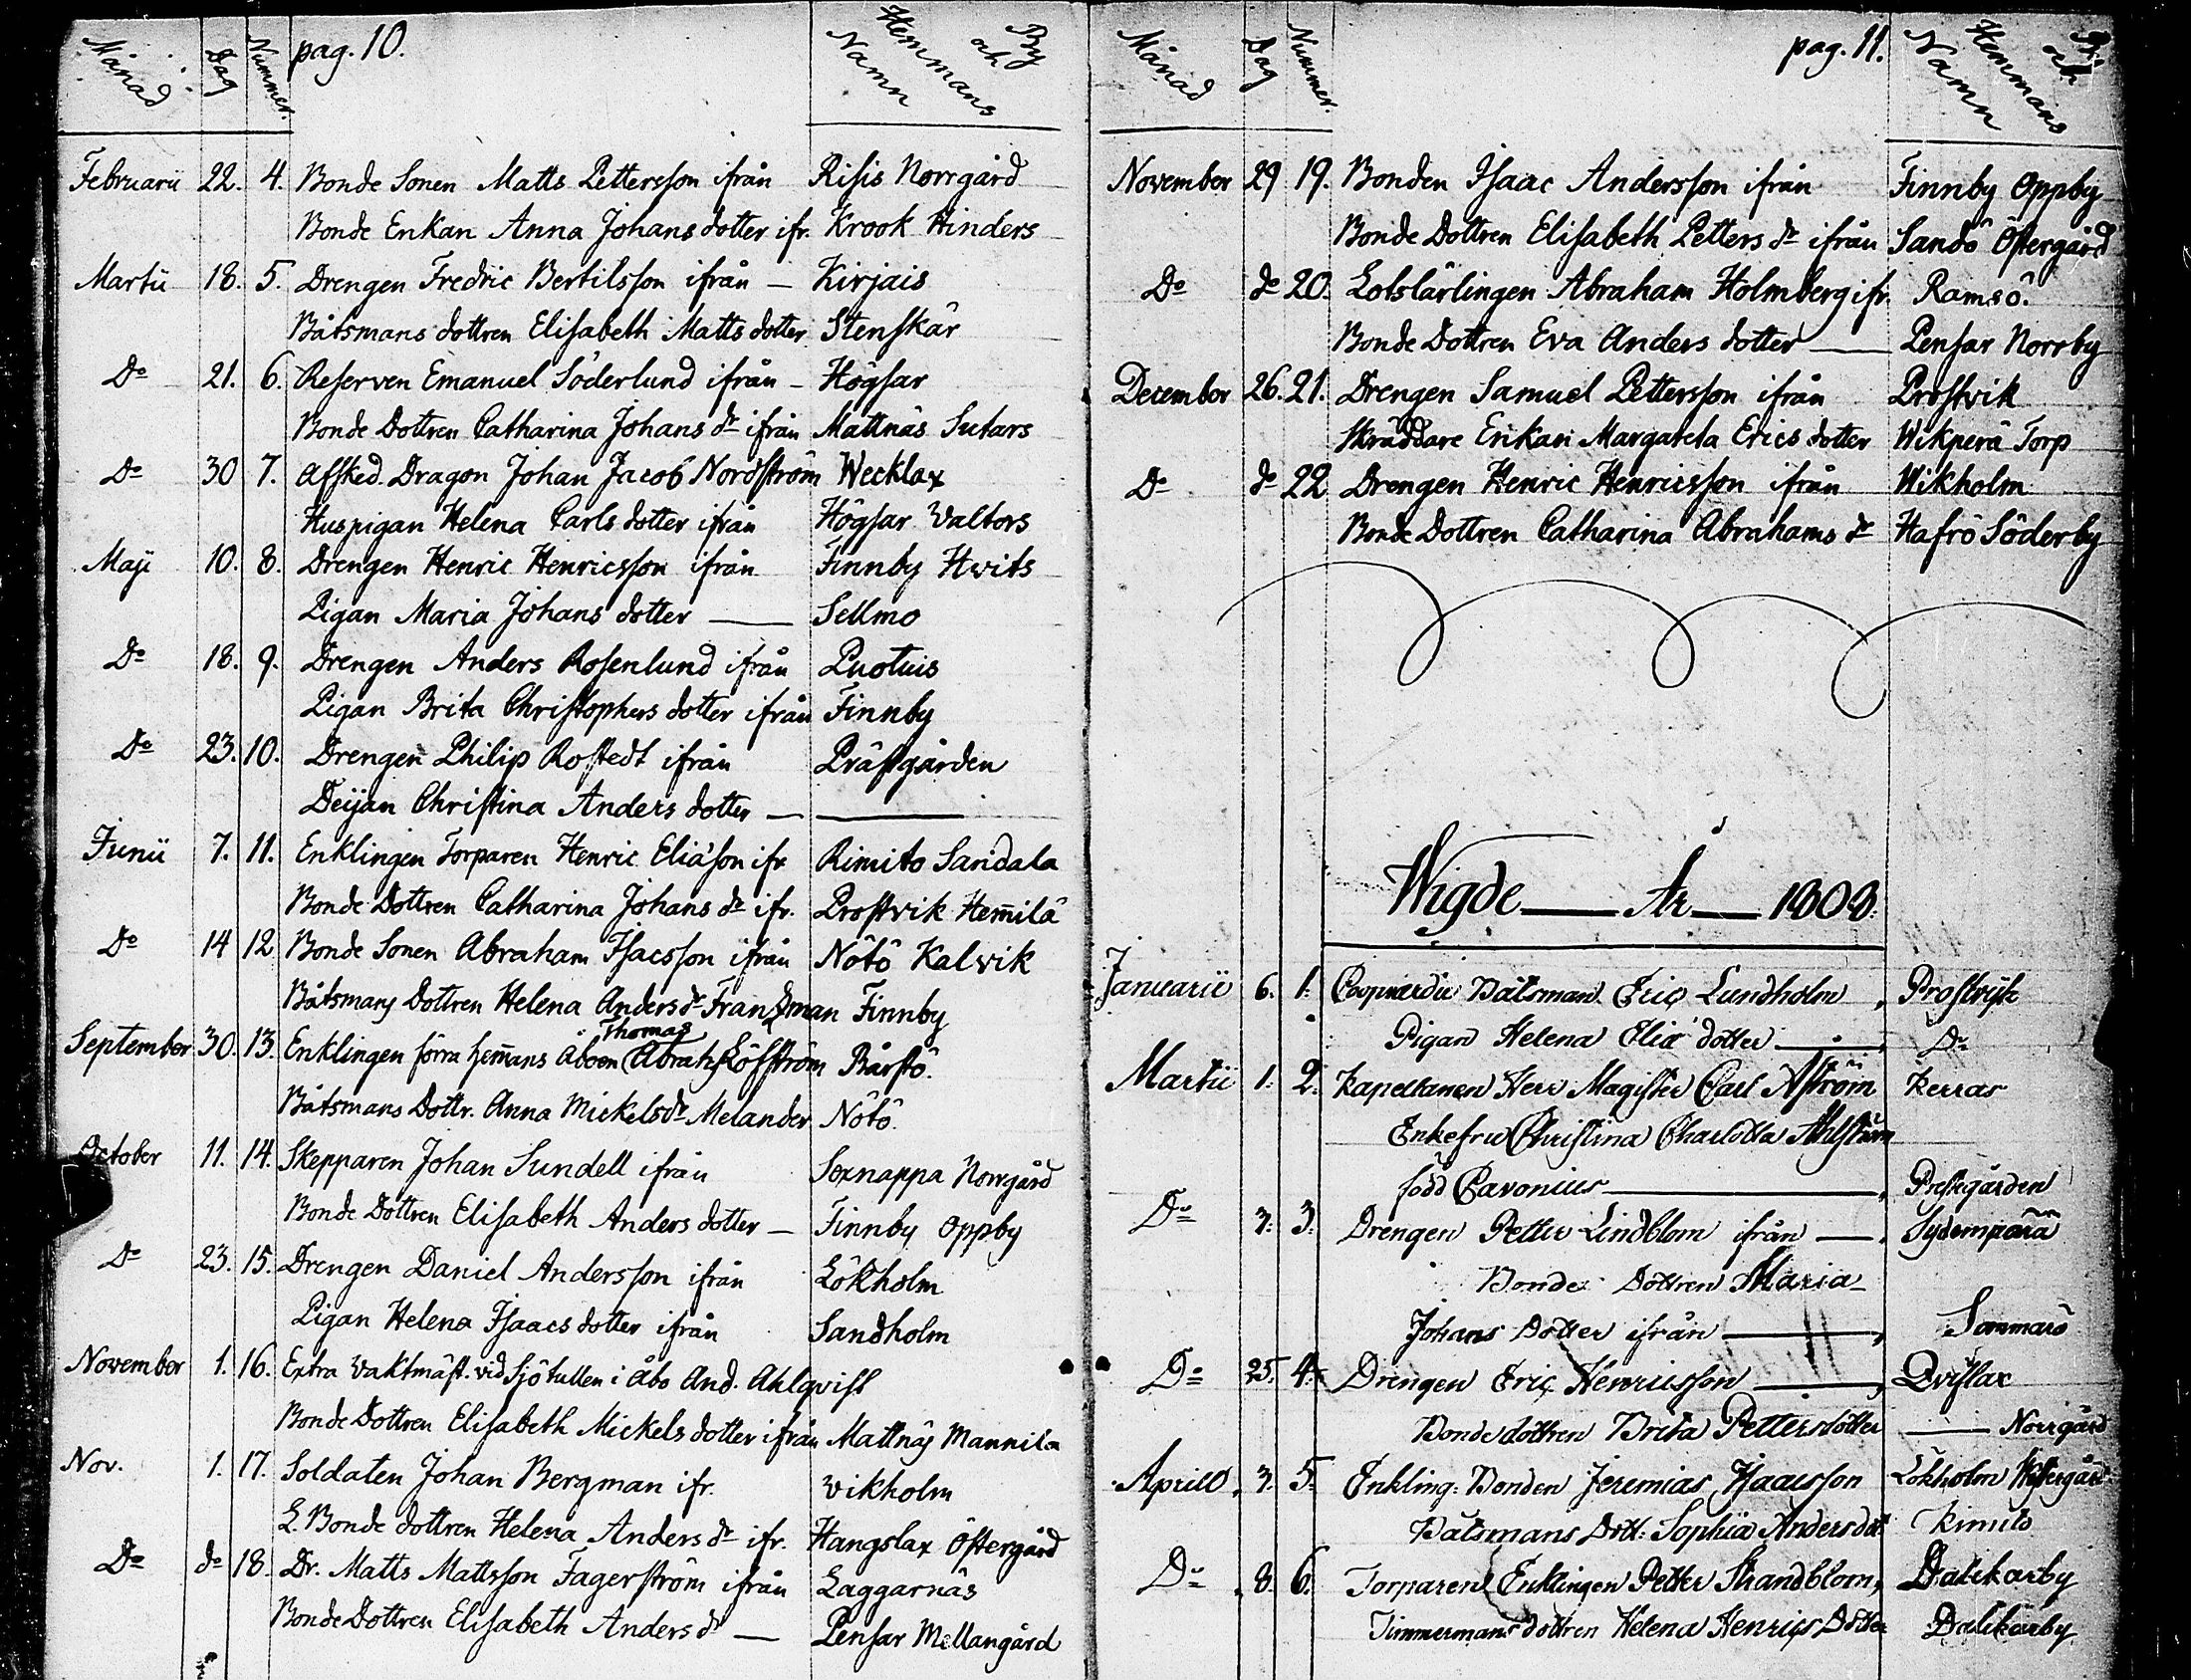 Månad Dag Nummer. pag. 10. By och Hemmans Namn
Februarii 22. 4. Bonde Sonen Matts Pettersson ifrån Risis Norrgård
Bonde Enkan Anna Johans dotter ifr. Krook Hinders
Martii 18. 5. Drengen Fredric Bertilsson ifrån — Kirjais
Båtsmans dottren Elisabeth Matts dotter Stenskär
Do 21. 6. Reserven Emanuel Söderlund ifrån — Högsar
Bonde Dottren Catharina Johans dr ifrån Mattnäs Sutars
Do 30 7. Afsked. Dragon Johan Jacob Nordström Wecklax
Huspigan Helena Carls dotter ifrån Högsar Valtors
Maji 10. 8. Drengen Henric Henricsson ifrån Finnby Hvits
Pigan Maria Johans dotter — Sellmo
Do 18. 9. Drengen Anders Rosenlund ifrån Puotuis
Pigan Brita Christophers dotter ifrån Finnby
Do 23. 10. Drengen Philip Rostedt ifrån Prästgården
Deijan Christina Anders dotter — —
Junii 7. 11. Enklingen Torparen Henric Eliä'son ifr Rimito Saridala
Bonde Dottren Catharina Johans dr ifr. Prostvik Hem̄ilä
Do 14 12 Bonde Sonen Abraham Isacsson ifrån Nötö Kalvik
Båtsmans Dottren Helena Anders dr Frandman Finnby
Thomas
September 30. 13. Enklingen förra hem̄ans Åboen (Abrah) Löfström Bårstö.
Båtsmans Dottr. Anna Mickelsdr Melander Nötö.
October 11. 14. Skepparen Johan Sundell ifrån Sexnappa Norrgård
Bonde Dottren Elisabeth Anders dotter — Finnby Oppby
Do 23. 15. Drengen Daniel Andersson ifrån Lökholm
Pigan Helena Isaacs dotter ifrån Sandholm
November 1. 16. Extra Vaktmäst. vid Sjötullen i Åbo And. Ahlqvist
Bonde Dottren Elisabeth Mickels dotter ifrån Mattnäs Mannila
Nov. 1. 17. Soldaten Johan Bergman ifr. Vikholm
L. Bonde dottren Helena Anders dr ifr. Hangslax Östergård
Do do 18. Dr. Matts Mattsson Fagerström ifrån Laggarnäs
Bonde Dottren Elisabeth Anders dr — Pensar Mellangård
Månad Dag Nummer. pag. 11. By och Hemmans Namn
November 29 19. Bonden Isaac Andersson ifrån Finnby Oppby
Bonde Dottren Elisabeth Petters dr ifrån Sandö Östergård
Do do 20. Lotslärlingen Abraham Holmberg ifr. Ramsö.
Bonde Dottren Eva Anders dotter — Pensar Norrby
December 26. 21. Drengen Samuel Pettersson ifrån Prostvik
Skräddare Enkan Margareta Erics dotter Wikperä Torp
Do do 22 Drengen Henric Henricsson ifrån Wikholm
Bonde Dottren Catharina Abrahams dr Hafrö Söderby
Wigde — År — 1803.
Januarii 6. 1. Båtsman Eric Lundholm, Prostvik
Pigan Helena Eliæ dotter —, Do
Martii 1. 2. Kapellanen Herr Magister Carl Aström Kerras
Enkefru Christina Charlotta Ahlström
född Pavonius —, Prestgården
Do 3. 3. Drengen Petter Lindblom ifrån —. Sydempärä
Bonde Dottren Maria
Johans Dotter ifrån —, Sommarö
Do 25. 4. Drengen Eric Henricsson —, Qvislax
Bonde dottren Brita Petters dotter — Norrgård
Aprill. 3. 5. Enkling: Bonden Jeremias Isaacsson Lökholm Westergård
Båtsmans Dott: Sophia Anders dott: Kimito
Do 8. 6. Torparen Enklingen Petter Strandblom, Dalkarby
Timmermans dottren Helena Henrics Dotter Dalkarby